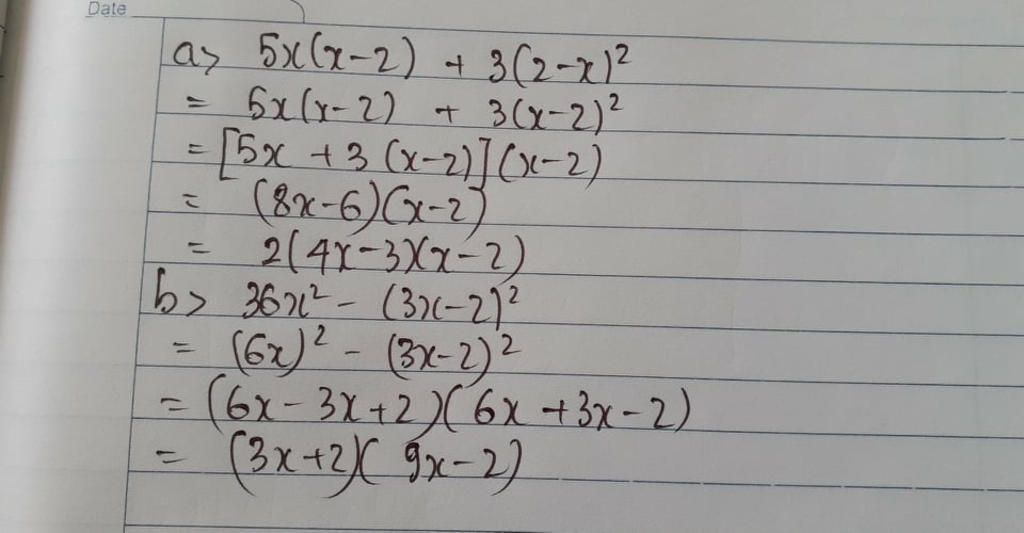 Date
a> 5x(x-2) + 3(2-x)²
= 5x(x-2) + 3(x-2)²
= [5x + 3(x-2)](x-2)
= (8x-6)(x-2)
= 2(4x-3)(x-2)
b> 36x² - (3x-2)²
= (6x)² - (3x-2)²
= (6x-3x+2)(6x+3x-2)
= (3x+2)(9x-2)